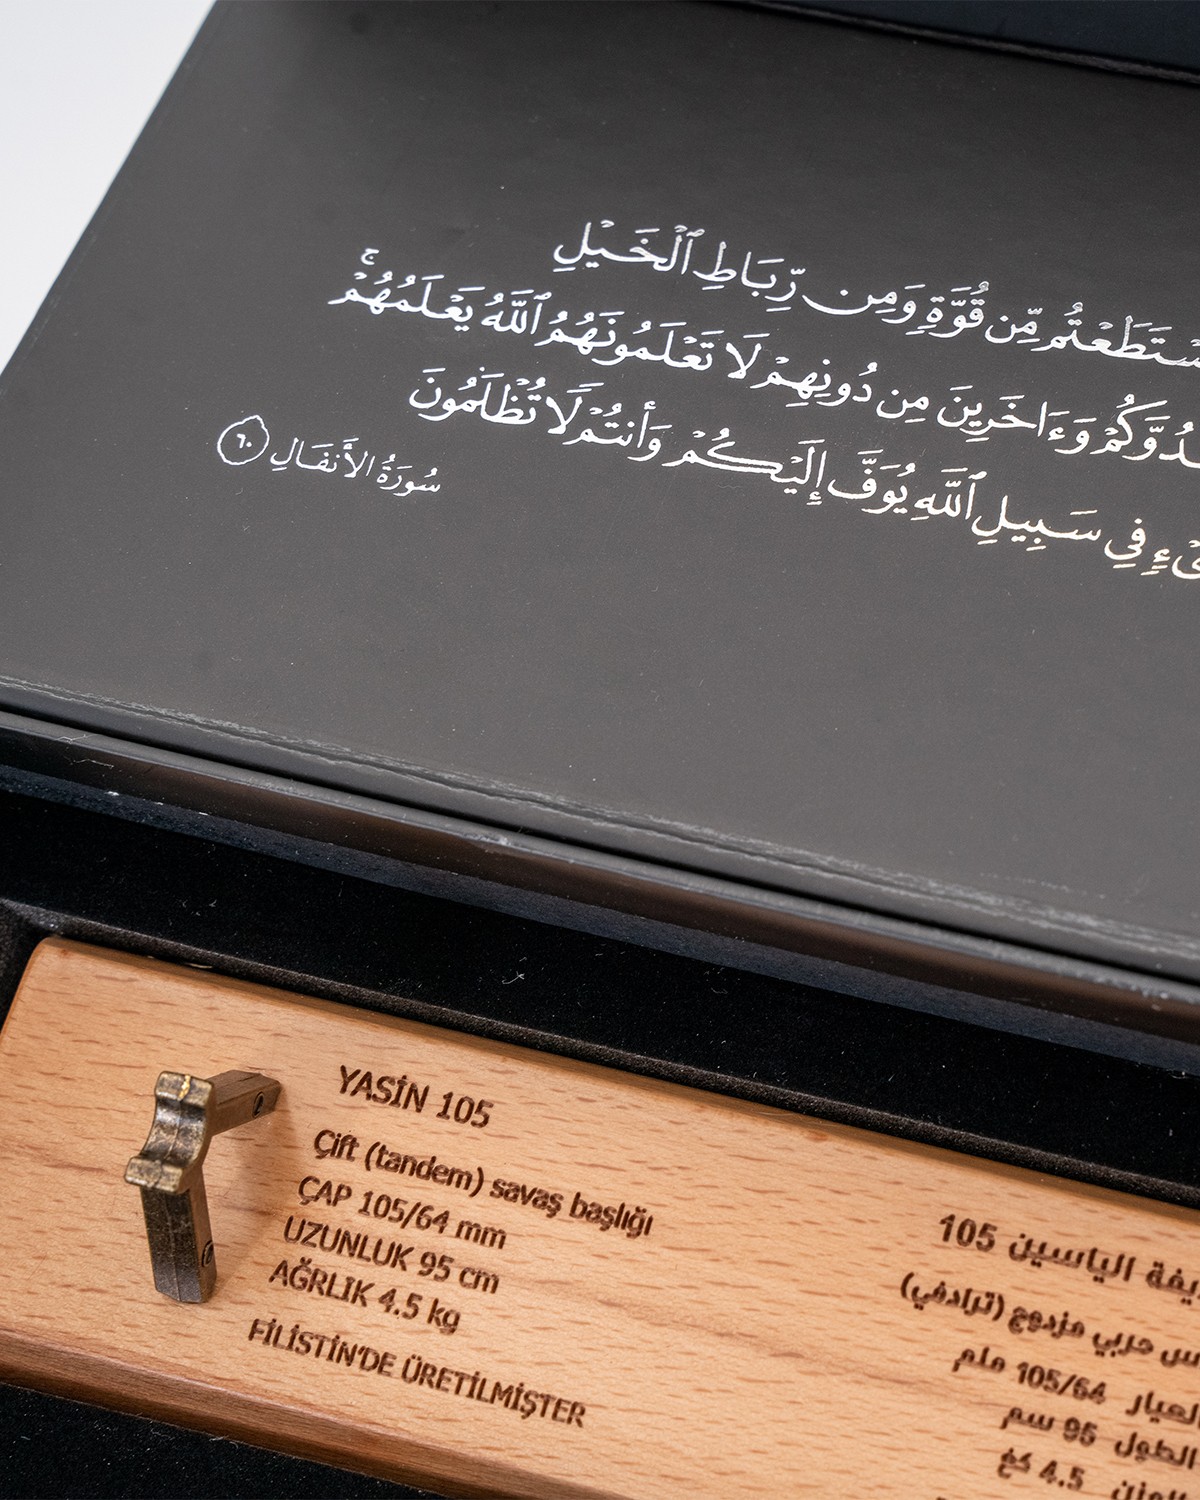 مِّن قُوَّةٍ وَمِن رِّبَاطِ ٱلْخَيْلِ
وَءَاخَرِينَ مِن دُونِهِمْ لَا تَعْلَمُونَهُمُ ٱللَّهُ يَعْلَمُهُمْ ۚ
فِي سَبِيلِ ٱللَّهِ يُوَفَّ إِلَيْكُمْ وَأَنتُمْ لَا تُظْلَمُونَ
سُورَةُ الأَنفَالِ ٦٠
YASİN 105
Çift (tandem) savaş başlığı
ÇAP 105/64 mm
UZUNLUK 95 cm
AĞRLIK 4.5 kg
FİLİSTİN'DE ÜRETİLMİŞTER
الياسين 105
حربي مزدوج (ترادفي)
105/64 ملم
الطول 95 سم
4.5 كغ